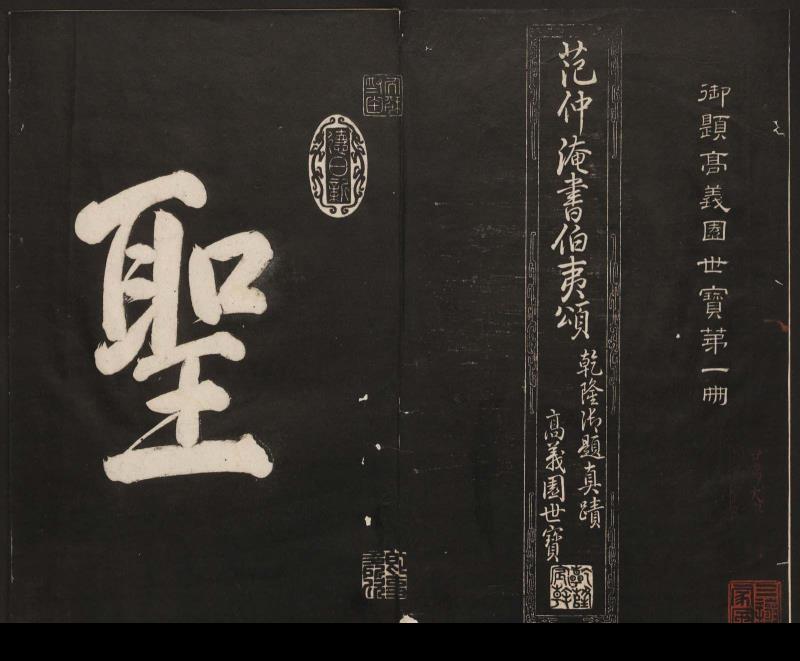 御題高義園世寶第一冊
范仲淹書伯夷頌
乾隆御題真蹟
高義園世寶
德日新
聖